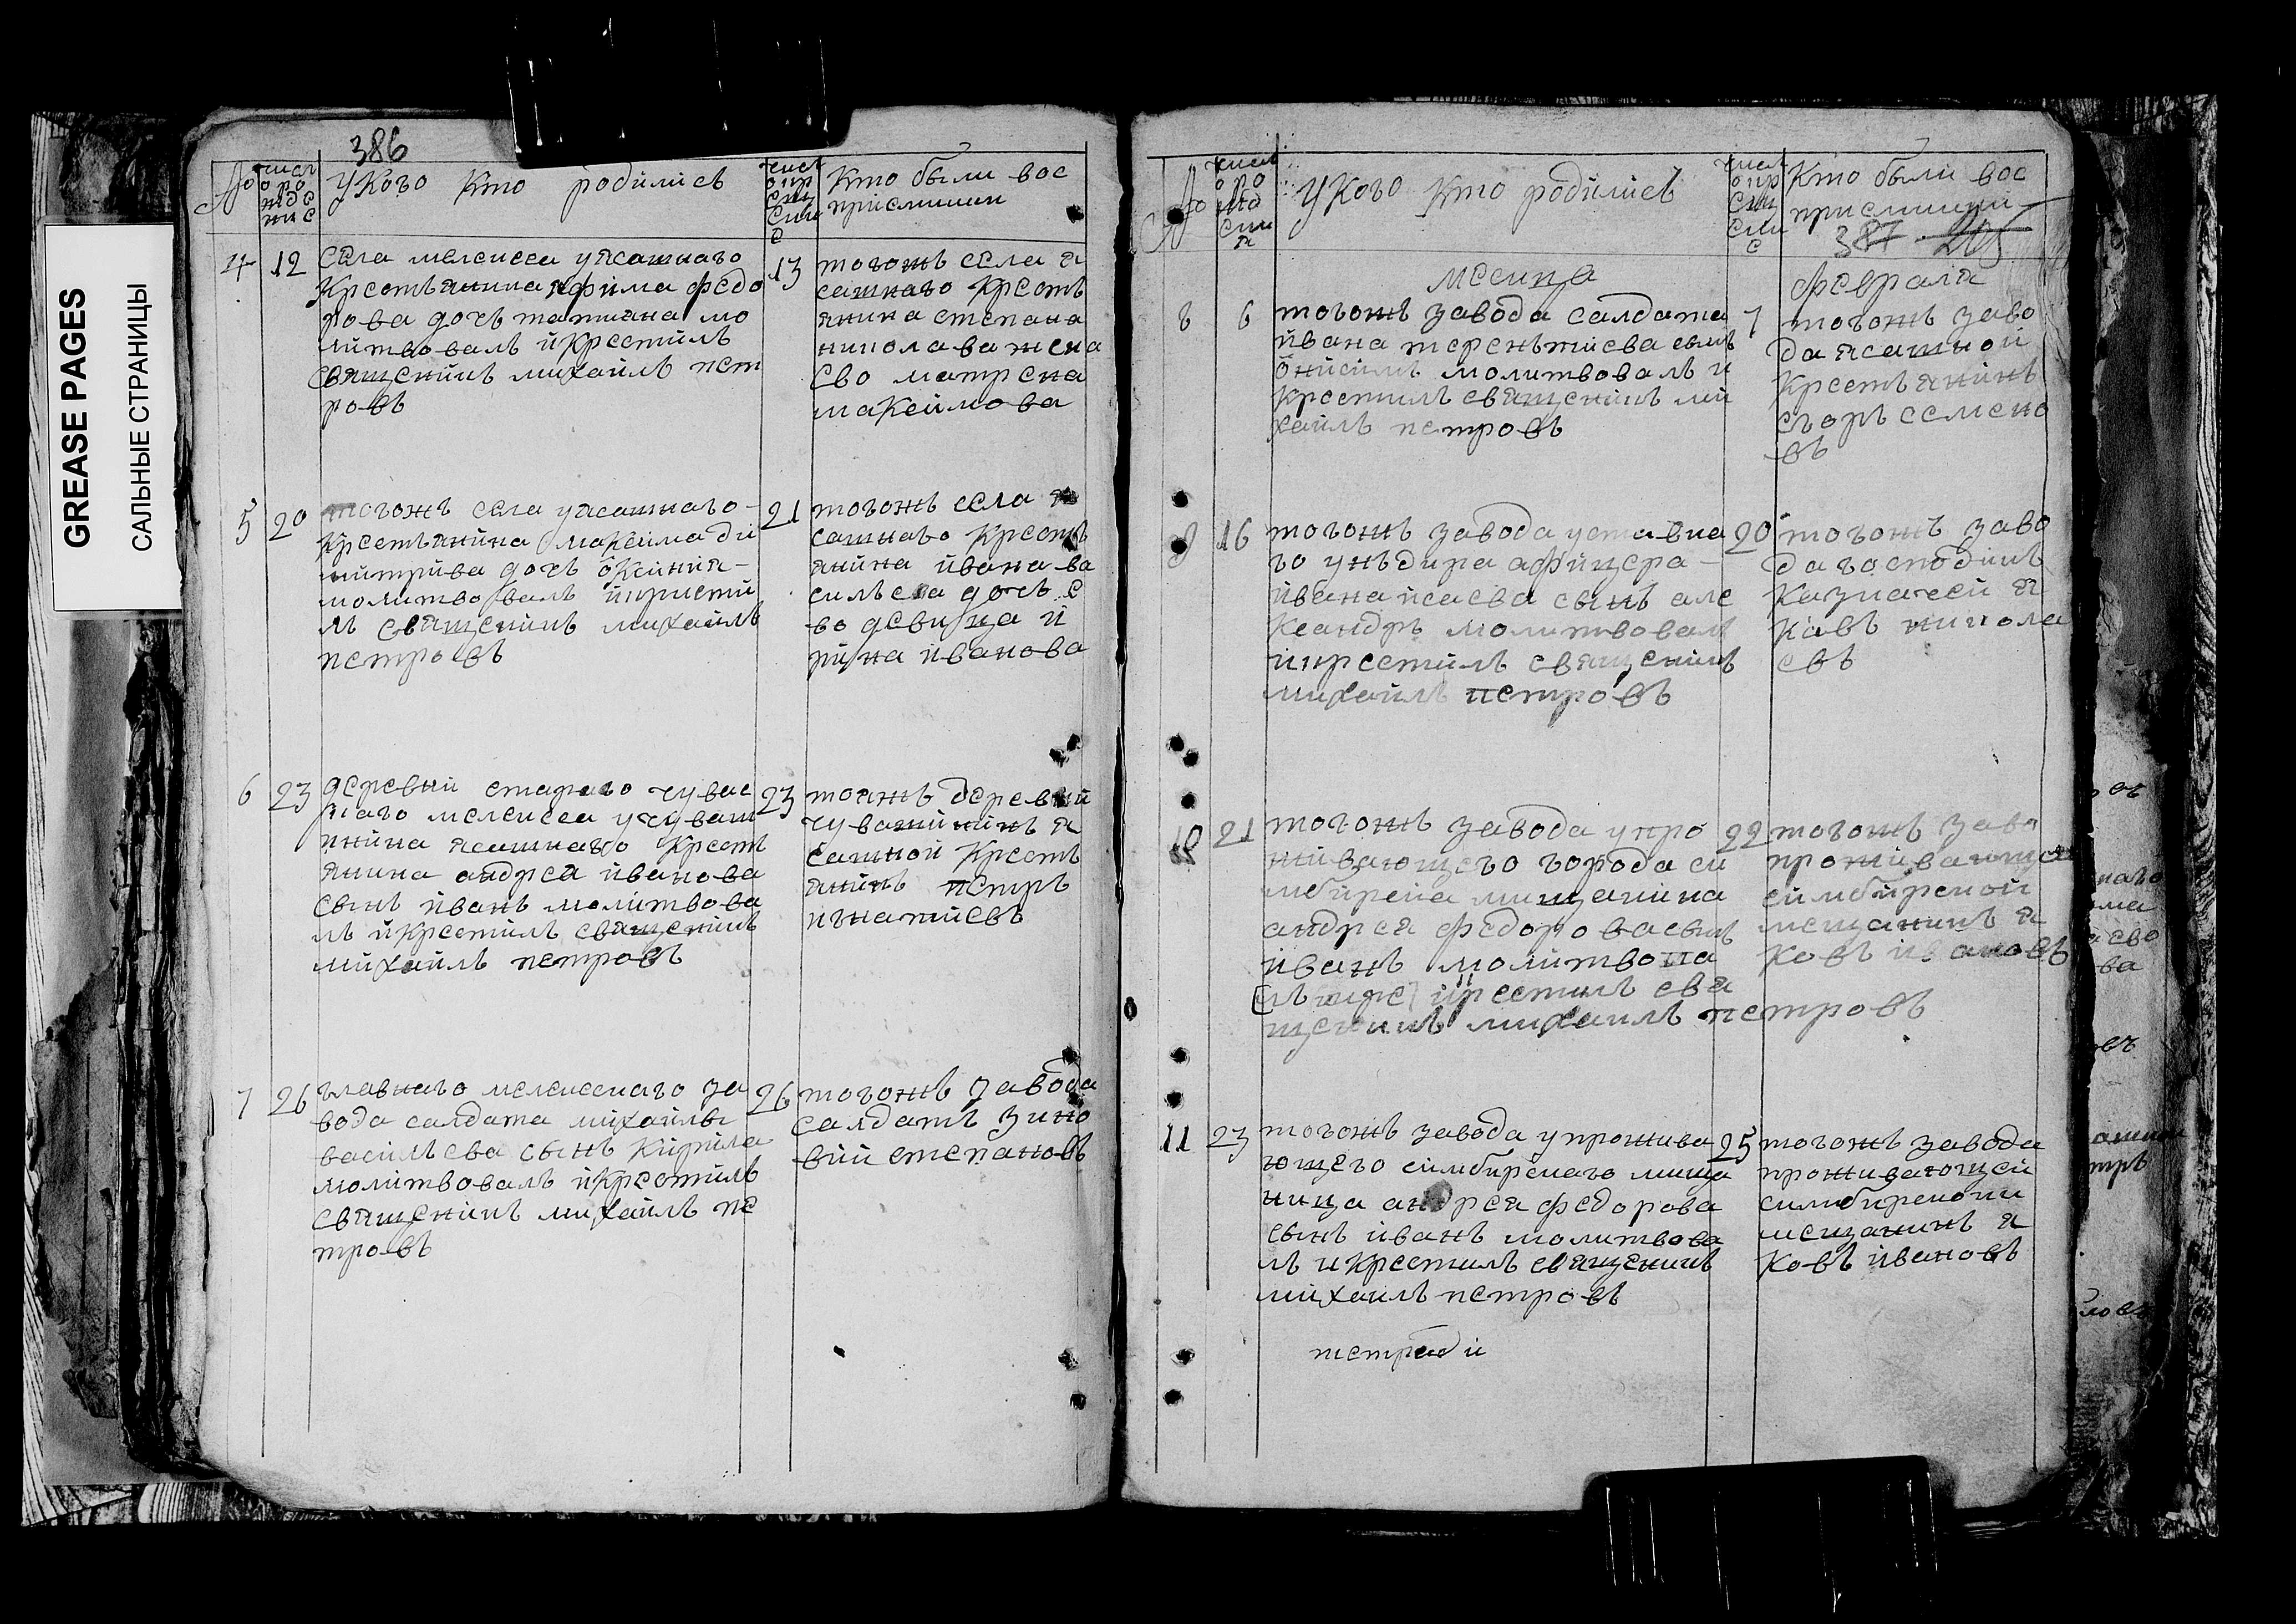 GREASE PAGES
САЛЬНЫЕ СТРАНИЦЫ
386
№
числ
о ро
жде
ние
У Кого Кто родилисъ
числ
о кр
ещ
ени
е
Кто были вос
приемники
4
12
села мелекеса уясашнаго
Крестьянина ефима федо
рова дочь татиана мо
литвовалъ и Крестилъ
священикъ михайлъ пет
ровъ
13
тогожъ села я
сашнаго Крестъ
янина степана
николаева жена
ево матрена
маКсимова
5
20
тогожъ села уясашнаго
Крестьянина маКсима ди
митриева дочь оКсиния
молитвовалъ икрести
лъ священикъ михайлъ
петровъ
21
тогожъ села я
сашнаго Крестъ
янина ивана ва
сильева дочь е
во девица и
рина иванова
6
23
деревни стараго чувас
каго мелекеса учуваш
нина ясашнаго Крестъ
янина андрея иванова
сынъ иванъ молитвова
лъ и Крестилъ священикъ
михайлъ петровъ
23
тояжъ деревни
чувашинин я
сашной Крестъ
янинъ петръ
игнатиевъ
7
26
главнаго мелекескаго за
вода салдата михайлы
васильева сынъ Кирила
молитвовалъ иКрестилъ
священикъ михайлъ пе
тровъ
26
тогожъ завода
салдатъ зино
вий степановъ
№
числ
о ро
жд
ени
я
У Кого Кто родилисъ
числ
о кр
ещ
ени
е
Кто были вос
приемники
387 205
месица
февраля
8
6
тогожъ завода салдата
ивана терентиева сынъ
онисимъ молитвовалъ и
Крестилъ священикъ ми
хайлъ петровъ
7
тогожъ заво
да ясашной
Крестьянинъ
егоръ семено
въ
9
16
тогожъ завода уставна
го унъдира афицера
ивана исаева сынъ але
Ксандръ молитвовалъ
икрестилъ священикъ
михайлъ петровъ
20
тогожъ заво
да господинъ
Казначей я
Ковъ никола
евъ
10
21
тогожъ завода упро
живающего города си
мбирска мищанина
андрея федорова сынъ
иванъ молитвова
лъ икрестилъ свя
щеникъ михаилъ петровъ
22
тогожъ заво
проживающе
симбирской
мещанинъ я
Ковъ ивановъ
11
23
тогожъ завода упрожива
ющего симбирскаго мища
нина андрея федорова
сынъ иванъ молитвова
лъ иКрестилъ священикъ
михаилъ петровъ
25
тогожъ завода
проживающей
симбирской
мещанинъ я
Ковъ ивановъ